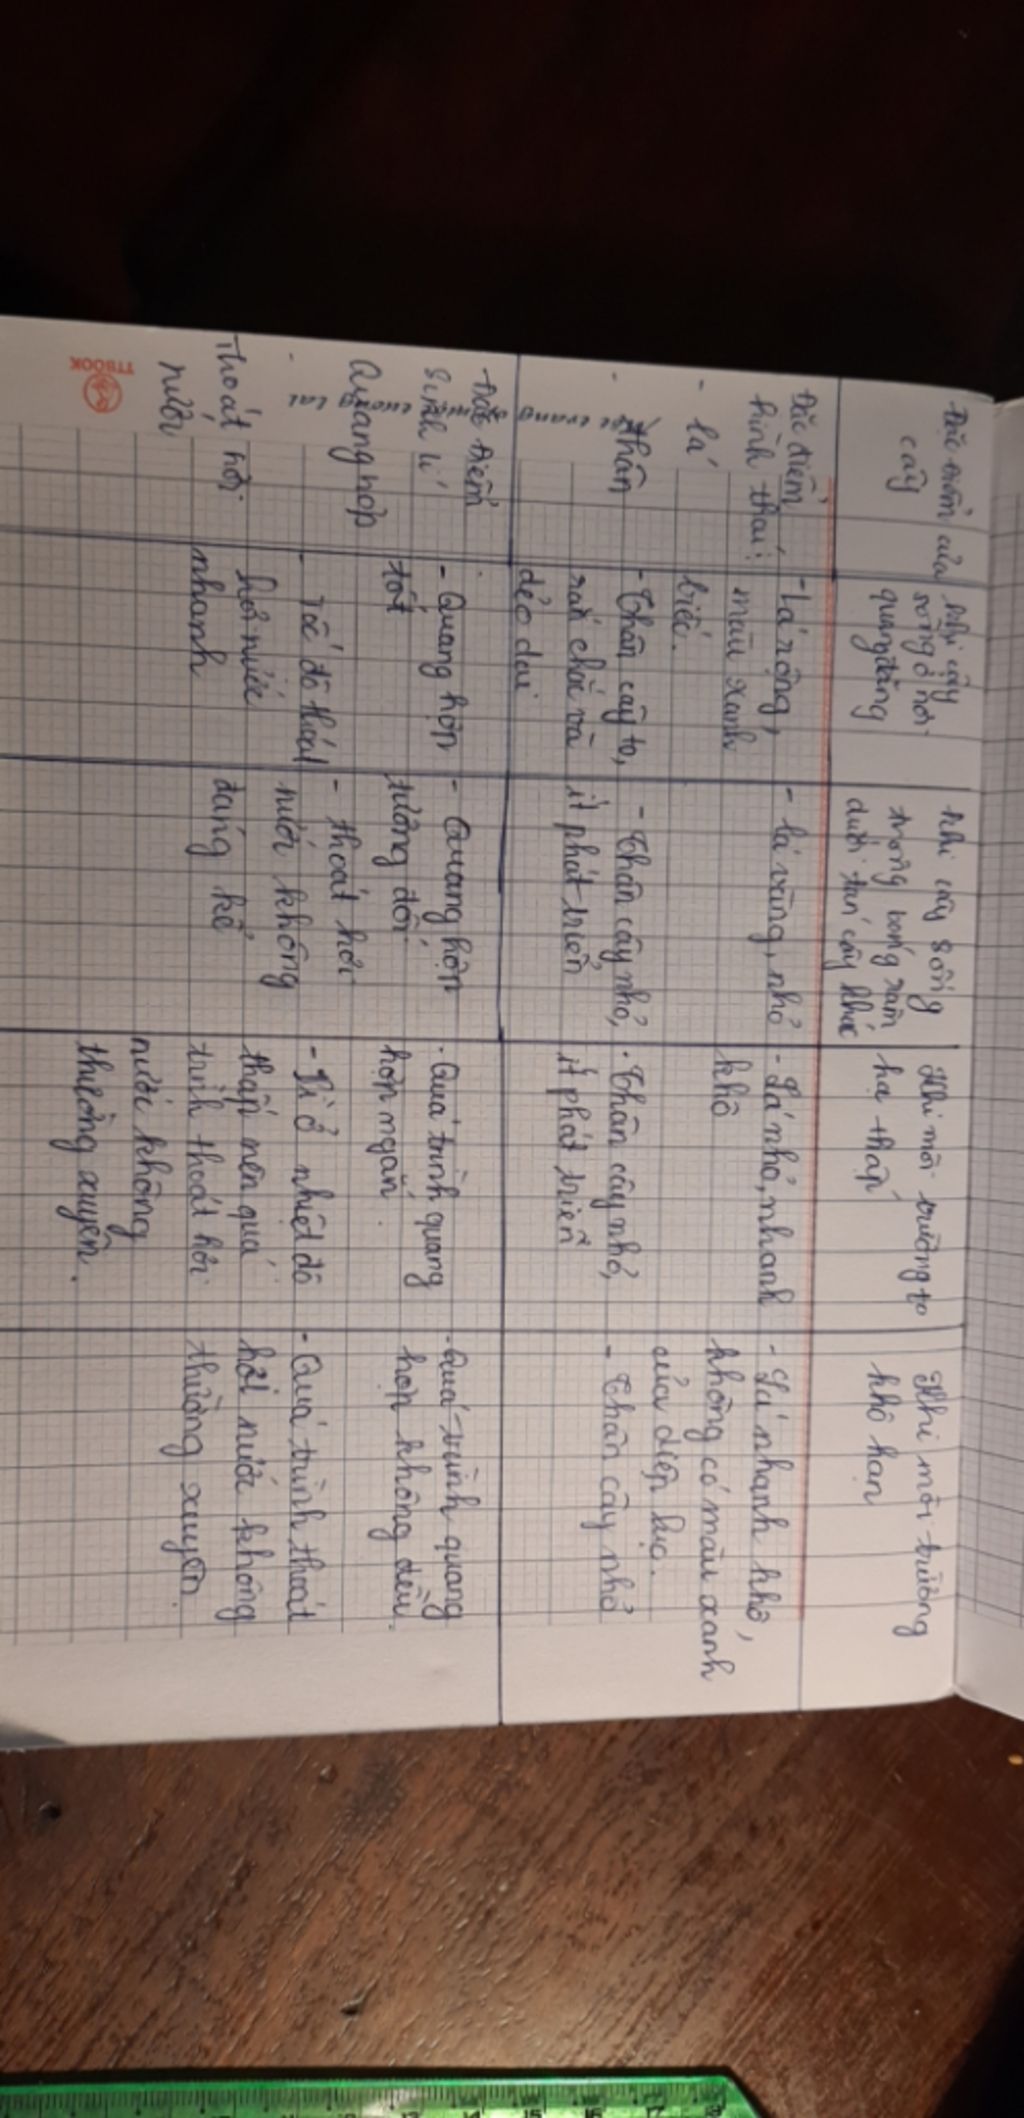 Đặc điểm của
cây
Khi cây
sống ở nơi
quang đãng
Khi cây sống
trong bóng râm
dưới tán cây khác
Khi môi trường to
hạ thấp
Khi môi trường
khô hạn
Đăc điểm
hình thái:
- lá
- Lá rộng,
màu xanh
biếc.
- lá vùng, nhỏ
- Lá nhỏ, nhanh
khô
- Lá nhanh khô,
không có màu xanh
của diệp lục.
. thân
- thân cây to,
rắn chắc và
dẻo dai
- Thân cây nhỏ,
ít phát triển
. Thân cây nhỏ,
ít phát triển
- Thân cây nhỏ
Đăc điểm
sinh lí
Quang hợp
- Quang hợp
tốt
- Quang hợp
tương đối
. Quá trình quang
hợp ngắn.
- Quá trình quang
hợp không đều.
. Thoát hơi
nước
- Tốc độ thoát
hơi nước
nhanh
- thoát hơi
nước không
đáng kể
- Vì ở nhiệt độ
thấp nên quá
trình thoát hơi
nước không
thường xuyên.
- Quá trình thoát
hơi nước không
thường xuyên.
TTBOOK